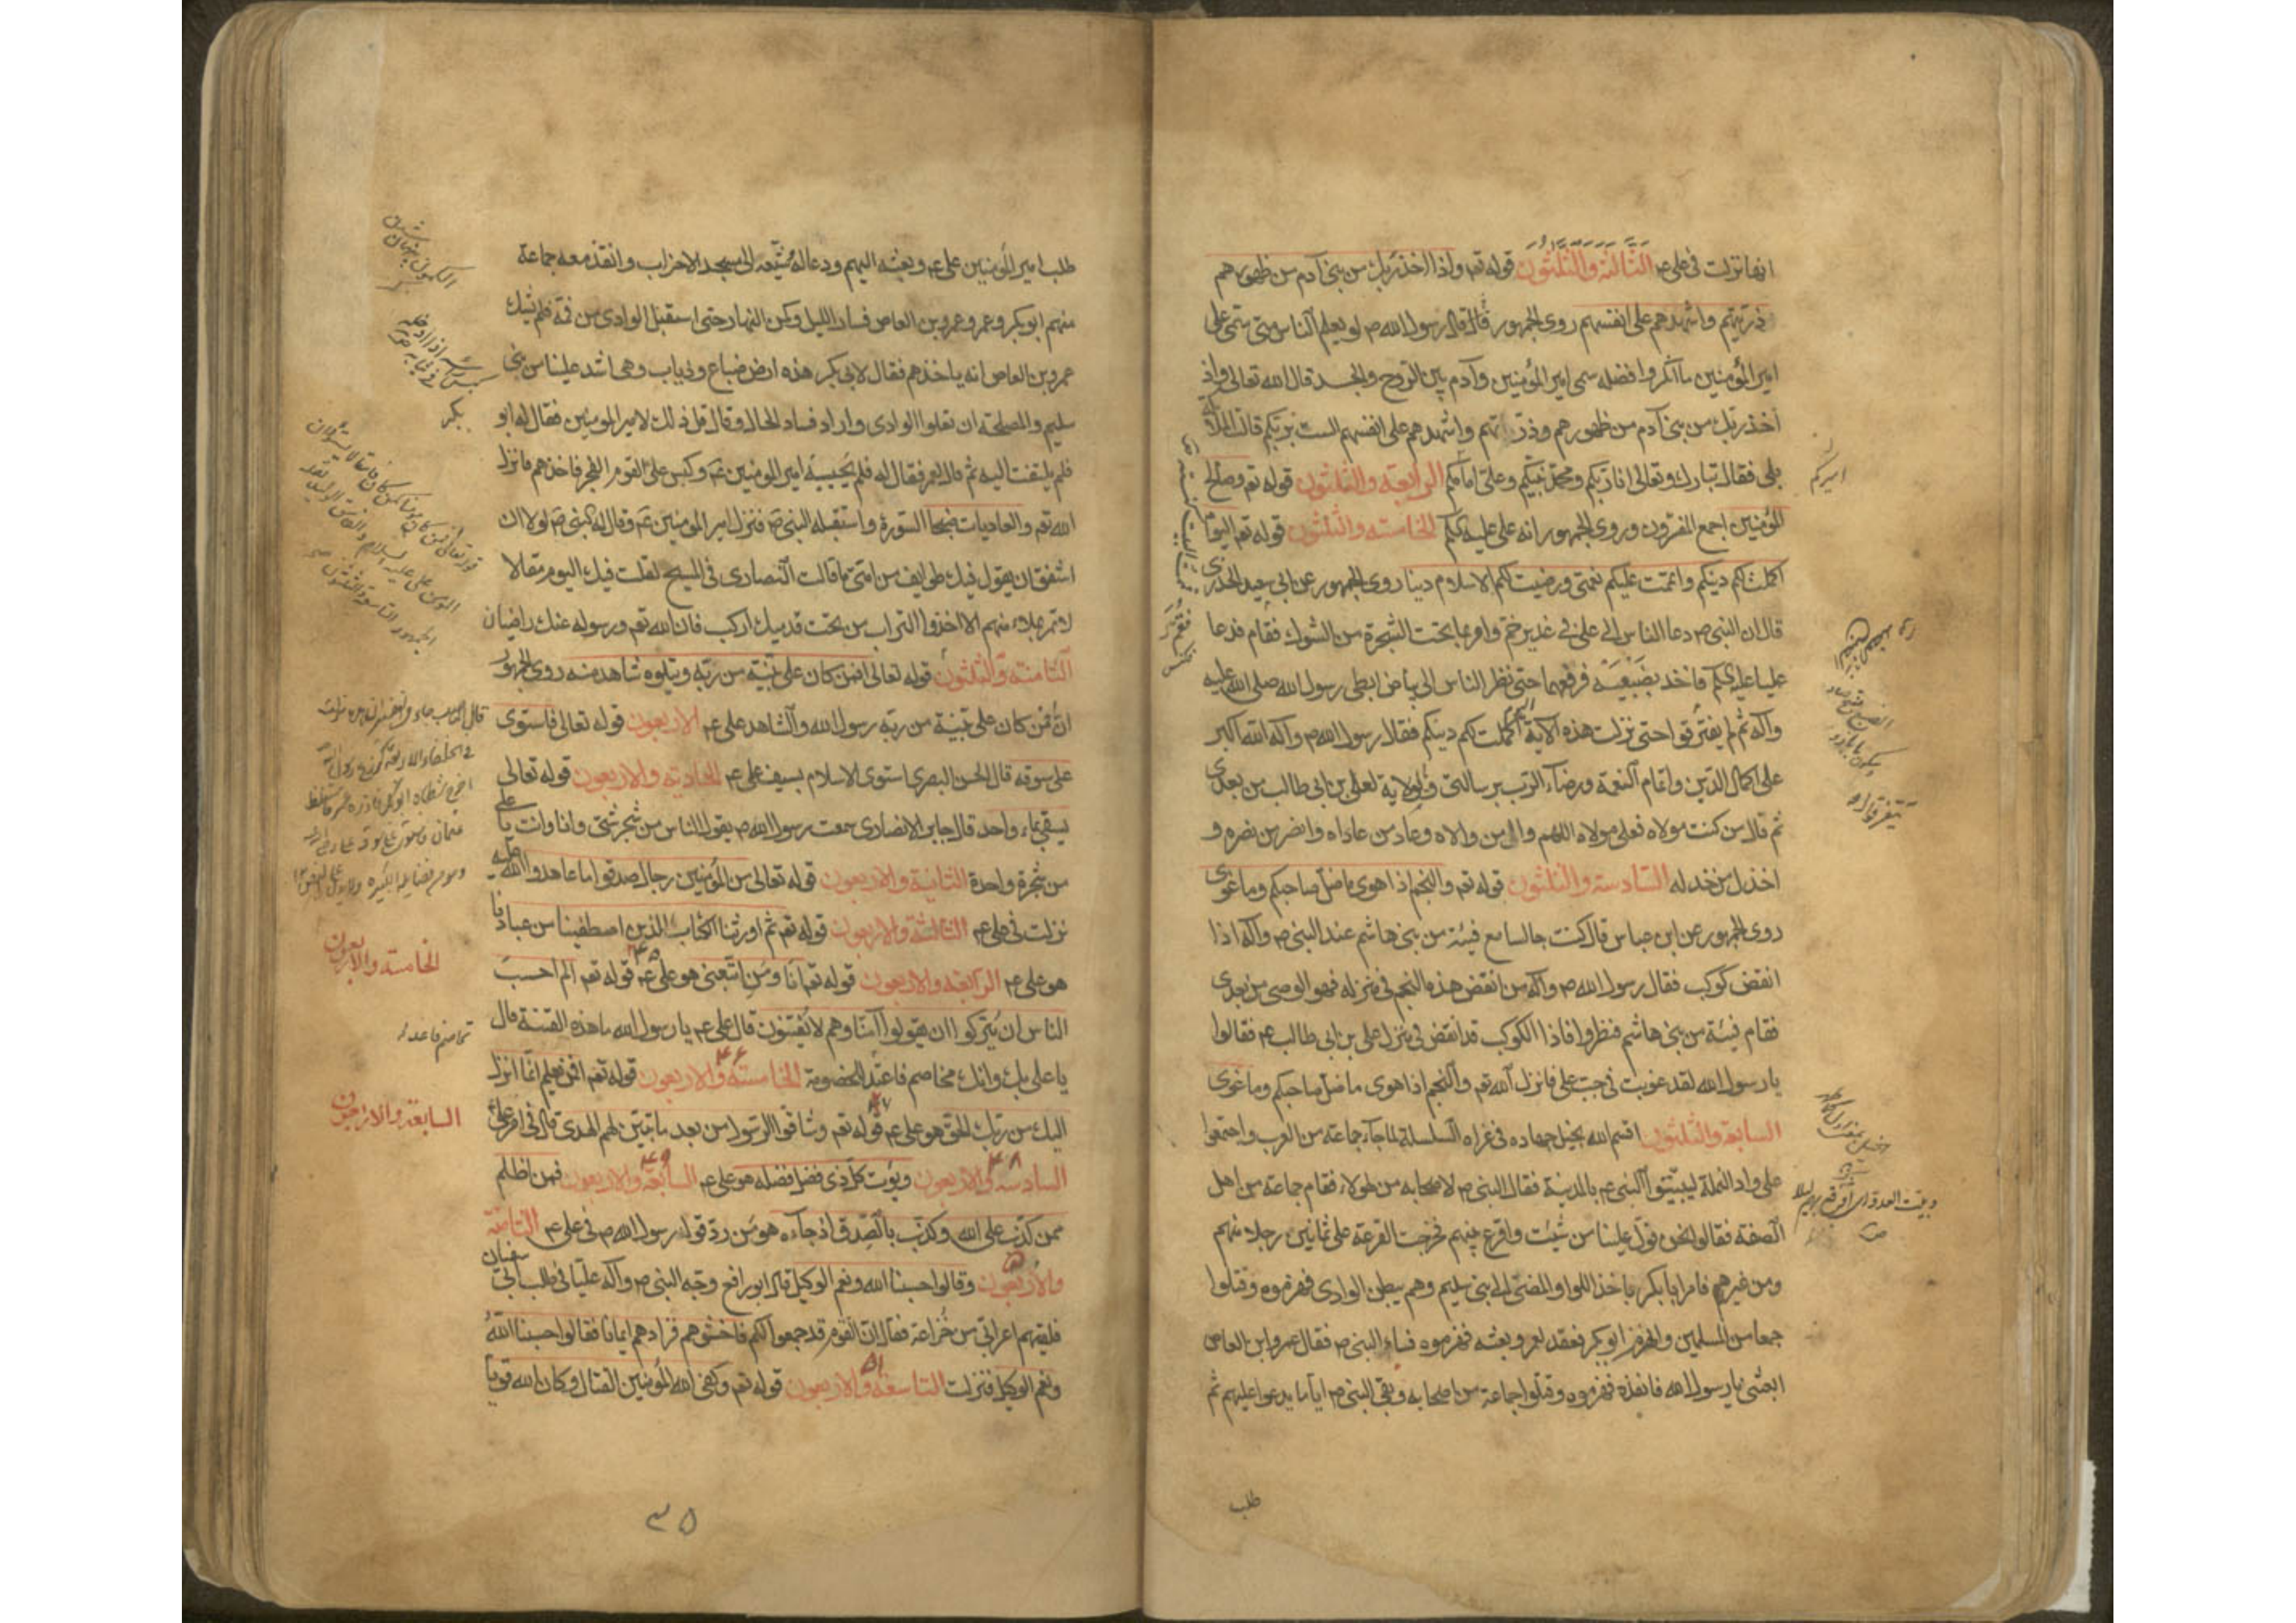 انها نزلت فی علی ع الثالثة والثلثون قوله تعم واذ اخذ ربك من بنی آدم من ظهورهم
ذریتهم واشهدهم علی انفسهم روی الجمهور قال قال رسول الله ص لو یعلم الناس متی سمی علی
امیر المؤمنین ما انکروا فضله سمی امیر المؤمنین وآدم بین الروح والجسد قال الله تعالی واذ
اخذ ربك من بنی آدم من ظهورهم وذریتهم واشهدهم علی انفسهم الست بربکم قالت الملائکة
بلی فقال تبارك وتعالی انا ربکم ومحمد نبیکم وعلی امامکم الرابعة والثلثون قوله تعم وصالح
المؤمنین اجمع المفسرون وروی الجمهور انه علی علیه لکم الخامسة والثلثون قوله تعم الیوم
اکملت لکم دینکم واتممت علیکم نعمتی ورضیت لکم الاسلام دینا روی الجمهور عن ابی سعید الخدری
قال ان النبی ص دعا الناس الی علی فی غدیر خم وامر بما تحت الشجرة من الشوك فقام فدعا
علیا فاخذ بضبعیه فرفعهما حتی نظر الناس الی بیاض ابطی رسول الله صلی الله علیه
وآله ثم لم یفترقوا حتی نزلت هذه الآیة الیوم اکملت لکم دینکم فقال رسول الله ص وآله الله اکبر
علی اکمال الدین واتمام النعمة ورضاء الرب برسالتی والولایة لعلی بن ابی طالب من بعدی
ثم قال من کنت مولاه فعلی مولاه اللهم وال من والاه وعاد من عاداه وانصر من نصره و
اخذل من خذله السادسة والثلثون قوله تعم والنجم اذا هوی ما ضل صاحبکم وما غوی
روی الجمهور عن ابن عباس قال کنت جالسا مع فیئة من بنی هاشم عند النبی ص وآله اذا
انقض کوکب فقال رسول الله ص وآله من انقض هذه النجم فی منزله فهو الوصی من بعدی
فقام فیئة من بنی هاشم فنظروا فاذا الکوکب قد انقض فی منزل علی بن ابی طالب ع فقالوا
یا رسول الله لقد غویت فی حب علی فانزل الله تعم والنجم اذا هوی ما ضل صاحبکم وما غوی
السابعة والثلثون اقسم الله بخیل جهاده فی غزاه السلسلة لما جاء جماعة من العرب واجتمعوا
علی واد النملة لیبیتوا النبی ع بالمدینة فقال النبی ص لاصحابه من لهؤلاء فقام جماعة من اهل
الصفة فقالوا نحن فول علینا من شئت واقرع بینهم فخرجت القرعة علی ثمانین رجلا منهم
ومن غیرهم فامر ابا بکر باخذ اللوا والمضی الی بنی سلیم وهم ببطن الوادی فهزموه وقتلوا
جمعا من المسلمین وانهزم ابو بکر فعقد لعمر وبعثه فهزموه فساء النبی ص فقال عمرو ابن العاص
ابعثنی یا رسول الله فانفذه فهزموه وقتلوا جماعة من اصحابه وبقی النبی ص ایاما یدعوا علیهم ثم
طلب
امیرکم
طلب امیر المؤمنین علی ع وبعثه الیهم ودعا له وشیعه الی مسجد الاحزاب وانفذ معه جماعة
منهم ابو بکر وعمر وعمرو بن العاص فسار اللیل وکمن النهار حتی استقبل الوادی من فمه فلم یشك
عمرو بن العاص انه یاخذهم فقال لابی بکر هذه ارض ضباع وذیاب وهی اشد علینا من بنی
سلیم والمصلحة ان تعلوا الوادی واراد فساد الحال وقال قل ذلك لامیر المومنین فقال له ابو
بکر
فلم یلتفت الیه ثم قال لعمر فقال له فلم یجیبه امیر المومنین ع وکبس علی القوم الفجر فاخذهم فانزل
الله تعم والعادیات ضبحا السورة واستقبله النبی ص فنزل امیر المومنین ع وقال له النبی ص لولا ان
اشفق ان یقول فیك طوایف من امتی ما قالت النصاری فی المسیح لقلت فیك الیوم مقالا
لا تمر بملاء منهم الا اخذوا التراب من تحت قدمیك ارکب فان الله تعم ورسوله عنك راضیان
الثامنة والثلثون قوله تعالی افمن کان علی بینة من ربه ویتلوه شاهد منه روی الجمهور
ان من کان علی بینة من ربه رسول الله والشاهد علی ع الاربعون قوله تعالی فاستوی
علی سوقه قال الحسن البصری استوی الاسلام بسیف علی ع الحادیة والاربعون قوله تعالی
یسقی بماء واحد قال جابر الانصاری سمعت رسول الله ص یقول الناس من شجر شتی وانا وانت یا علی
من شجرة واحدة الثانیة والاربعون قوله تعالی من المؤمنین رجال صدقوا ما عاهدوا الله علیه
نزلت فی علی ع الثالثة والاربعون قوله تعم ثم اورثنا الکتاب الذین اصطفینا من عبادنا
هو علی ع الرابعة والاربعون قوله تعم انا ومن اتبعنی هو علی ع ۴۵ قوله تعم الم احسب
الناس ان یترکوا ان یقولوا آمنا وهم لا یفتنون قال علی ع یا رسول الله ما هذه الفتنة قال
یا علی بك وانك مخاصم فاعتد للخصومة الخامسة والاربعون ۴۶ قوله تعم افمن یعلم انما انزل
الیك من ربك الحق هو علی ع ۴۷ قوله تعم وشاقوا الرسول من بعد ما تبین لهم الهدی قال فی امر علی
السادسة والاربعون ۴۸ ویؤت کل ذی فضل فضله هو علی ع السابعة والاربعون ۴۹ فمن اظلم
ممن کذب علی الله وکذب بالصدق اذ جاءه هو من رد قول رسول الله ص فی علی ع الثامنة
والاربعون وقالوا حسبنا الله ونعم الوکیل قال ابو رافع وجه النبی ص وآله علیا فی طلب ابی سفیان
فلقیهم اعرابی من خزاعة فقال ان القوم قد جمعوا لکم فاخشوهم فزادهم ایمانا فقالوا حسبنا الله
ونعم الوکیل فنزلت التاسعة والاربعون ۵۱ قوله تعم وکفی الله المؤمنین القتال وکان الله قویا
الخامسة والاربعون
السابعة والاربعون